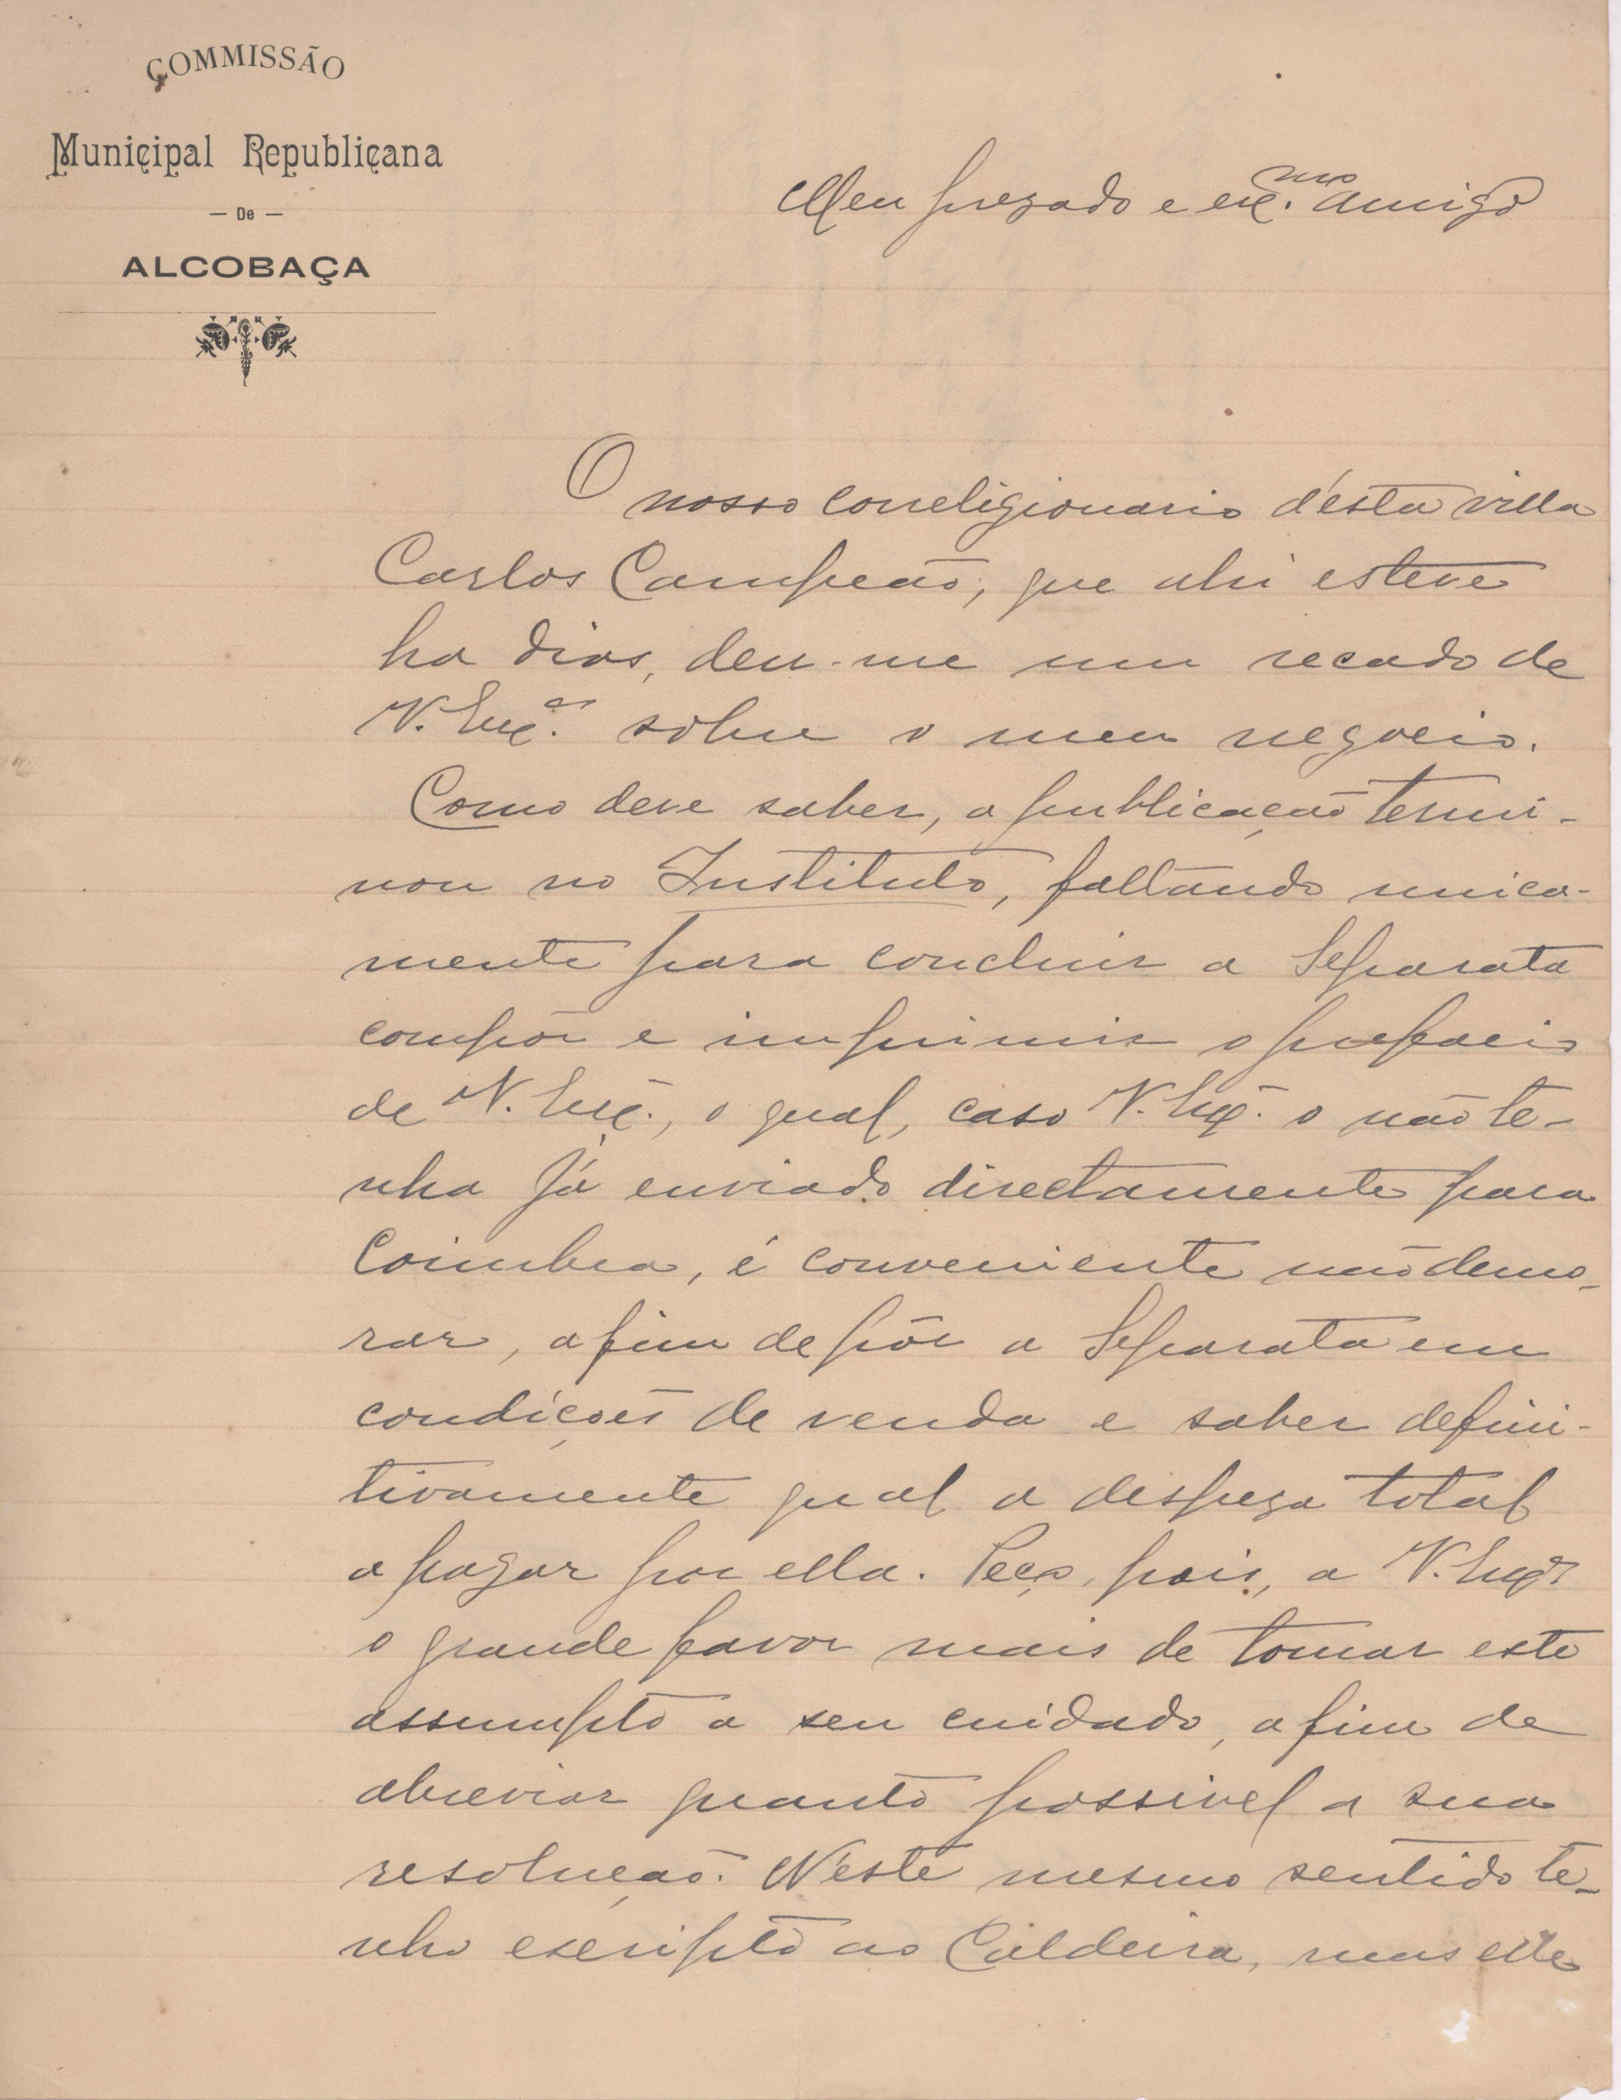 COMMISSÃO
Municipal Republicana
— De —
ALCOBAÇA
Meu prezado e ex.mo amigo
O nosso correligionario d'esta villa
Carlos Campeão, que ahi esteve
ha dias, deu-me um recado de
V. Exç.as sobre o meu negocio.
Como deve saber, a publicação termi-
nou no Instituto, faltando unica-
mente para concluir a Separata
compôr e imprimir o prefacio
de V. Exç.ª, o qual, caso V. Exç.ª o não te-
nha já enviado directamente para
Coimbra, é conveniente não demo-
rar, afim de pôr a Separata em
condições de venda e saber defini-
tivamente qual a despeza total
a pagar por ella. Peço, pois, a V. Exç.ª
o grande favor mais de tomar este
assumpto a seu cuidado, afim de
abreviar quanto possivel a sua
resolução. N'este mesmo sentido te-
nho escripto ao Caldeira, mas elle